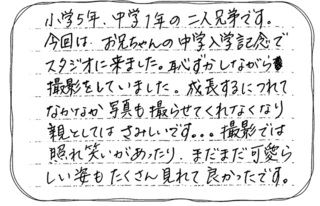 小学5年、中学1年の二人兄弟です。
今回は、お兄ちゃんの中学入学記念で
スタジオに来ました。恥ずかしながら
撮影をしていました。成長するにつれて
なかなか写真も撮らせてくれなくなり
親としてはさみしいです...撮影では
照れ笑いがあったり、まだまだ可愛ら
しい姿もたくさん見れて良かったです。